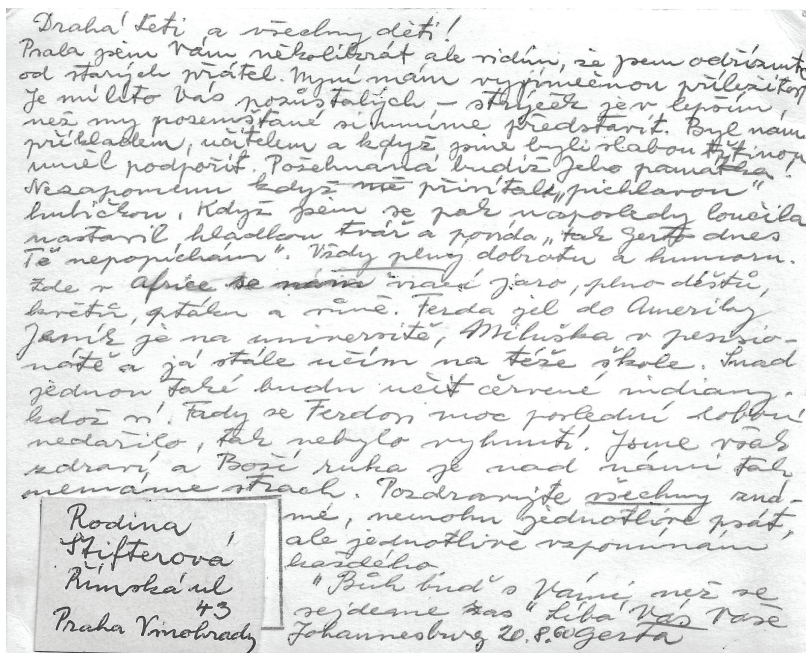 Drahá teti a všechny děti!
Psala jsem Vám několikrát ale vidím, že jsem odříznuta
od starých přátel. Nyní mám vyjímečnou příležitost
Je mi líto Vás pozůstalých – strýček je v lepším,
než my pozemšťané si umíme představit. Byl nám
příkladem, učitelem a když jsme byli slabou třtinou
uměl podpořit. Požehnaná budiž Jeho památka!
Nezapomenu když mě přivítal „pichlavou"
hubičkou. Když jsem se pak naposledy loučila
nastavil hladkou tvář a povídá „tak Gerto dnes
Tě nepopíchám". Vždy plný dobrotu a humoru.
Zde v Africe se nám vrací jaro, plno deštů,
květů, ptáků a vůně. Ferda jel do Ameriky
Jeník je na universitě, Miluška v pensio-
nátě a já stále učím na téže škole. Snad
jednou také budu učit červené indiany.
kdož ví. Tady se Ferdovi moc poslední dobou
nedařilo, tak nebylo vyhnutí. Jsme však
zdraví a Boží ruka je nad námi tak
nemáme strach. Pozdravujte všechny zná-
mé, nemohu jednotlivě psát,
ale jednotlivě vzpomínám
každého
"Bůh buď s Vámi, než se
sejdeme zas" Líbá Vás Vaše
Johannesburg 20.8.60 Gerta
Rodina
Štifterová
Římská ul
43
Praha Vinohrady